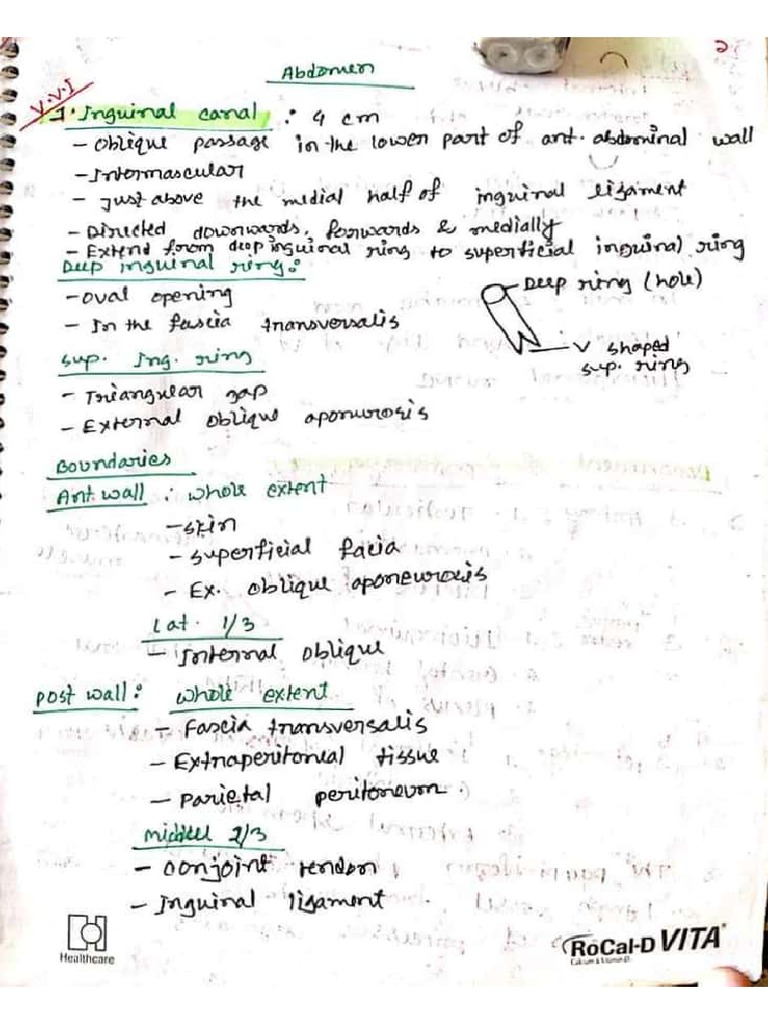 Abdomen
V.V.I
1. Inguinal canal : 4 cm
- Oblique passage in the lower part of ant. abdominal wall
- Intermascular
- Just above the medial half of inguinal ligament
- Directed downwards, forwards & medially
- Extend from deep inguinal ring to superficial inguinal ring
Deep inguinal ring:
- oval opening
- In the fascia transversalis
Deep ring (hole)
V shaped
sup. ring
Sup. Ing. ring
- Triangular gap
- External oblique aponurosis
Boundaries
Ant. wall : whole extent
- skin
- superficial facia
- Ex. oblique aponeurosis
Lat. 1/3
- Internal oblique
post wall: whole extent
- Fascia transversalis
- Extraperitonial tissue
- parietal peritoneum.
middle 2/3
- conjoint tendon
- Inguinal ligament
Healthcare
RoCal-D VITA